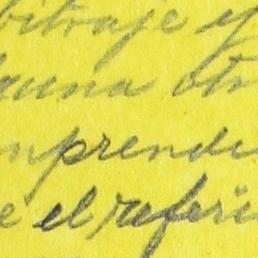 bitraje y
guna otr
mprendi
e el referi